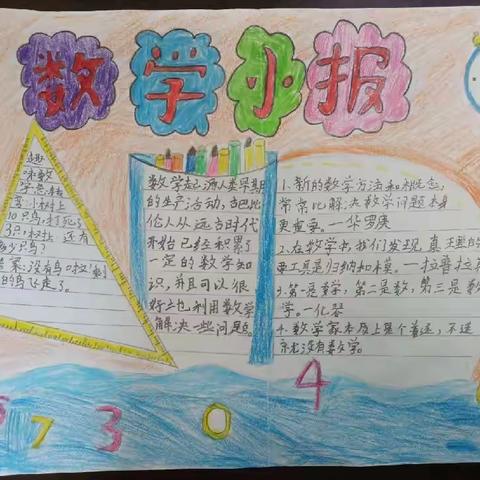 数学小报
趣
味数
学急转
弯:小树上
10只鸟,打死了
3只,树上还有
多少只鸟?
答案:没有鸟啦,剩
的鸟飞走了。
数学起源人类早期
的生产活动,古巴比
伦人从远古时代
开始已经积累了
一定的数学知
识,并且可以很
好上也利用数学
解决一些问题。
1.新的数学方法和概念,
常常比解决数学问题本身
更重要。一华罗庚
2.在数学中,我们发现真理的
要工具是归纳和模。一拉普拉
3.第一是数学,第二是数,第三是数
学。一伦琴
4.数学家本质上是个着迷,不迷
就没有数学。
7
3
0
4